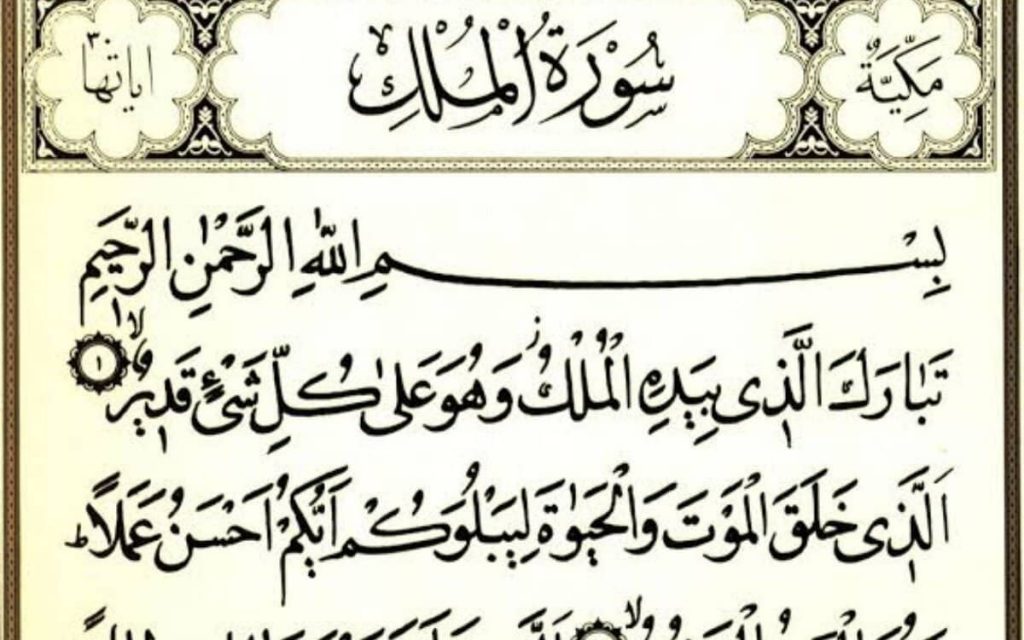 مَكِّيَّةٌ
سُوْرَةُ الْمُلْكِ
اياتها ٣٠
بِسْمِ اللّٰهِ الرَّحْمٰنِ الرَّحٖيمِ
تَبَارَكَ الَّذٖى بِيَدِهِ الْمُلْكُ ز وَهُوَ عَلٰى كُلِّ شَىْءٍ قَدٖيرٌ لا ١
اَلَّذٖى خَلَقَ الْمَوْتَ وَالْحَيٰوةَ لِيَبْلُوَكُمْ اَيُّكُمْ اَحْسَنُ عَمَلًا ط